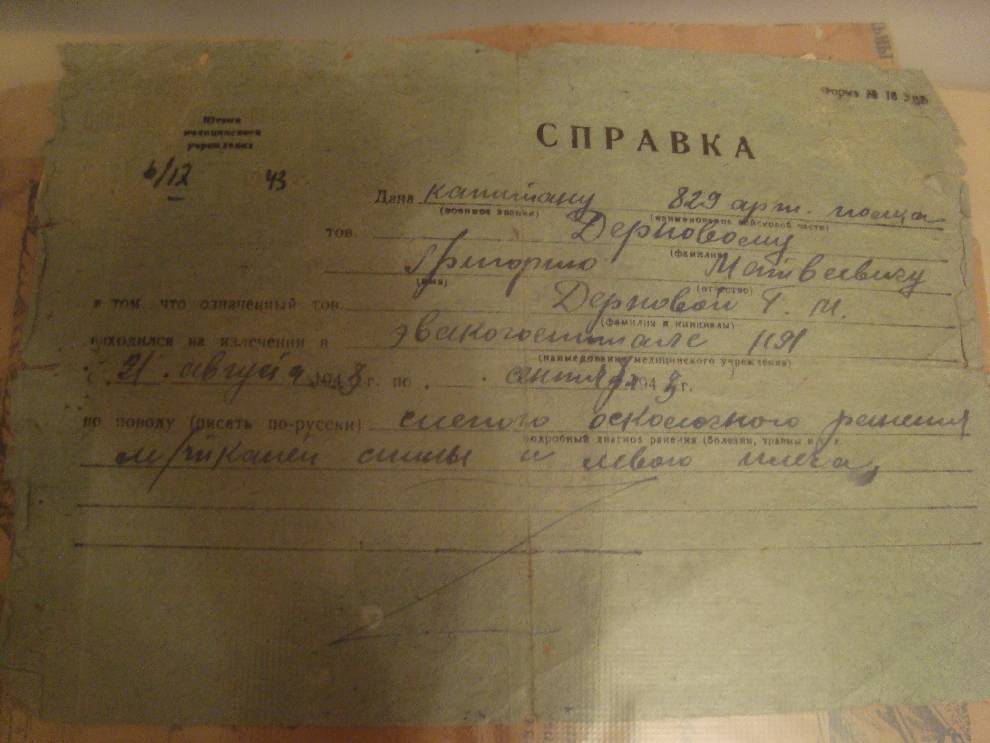 Форма № 16
Штамп
медицинского
учреждения
СПРАВКА
6/12 43
Дана капитану 829 арт. полка
(военное звание) (наименование войсковой части)
тов. Дерновому
(фамилия)
Григорию Матвеевичу
(имя) (отчество)
в том, что означенный тов. Дерновой Г. М.
(фамилия и инициалы)
находился на излечении в эвакогоспитале
(наименование медицинского учреждения)
21 августа 1943 г. по сентября 1943 г.
по поводу (писать по-русски) слепого осколочного ранения
подробный диагноз ранения (болезни, травмы и т. г.
м/тканей спины и левого плеча,